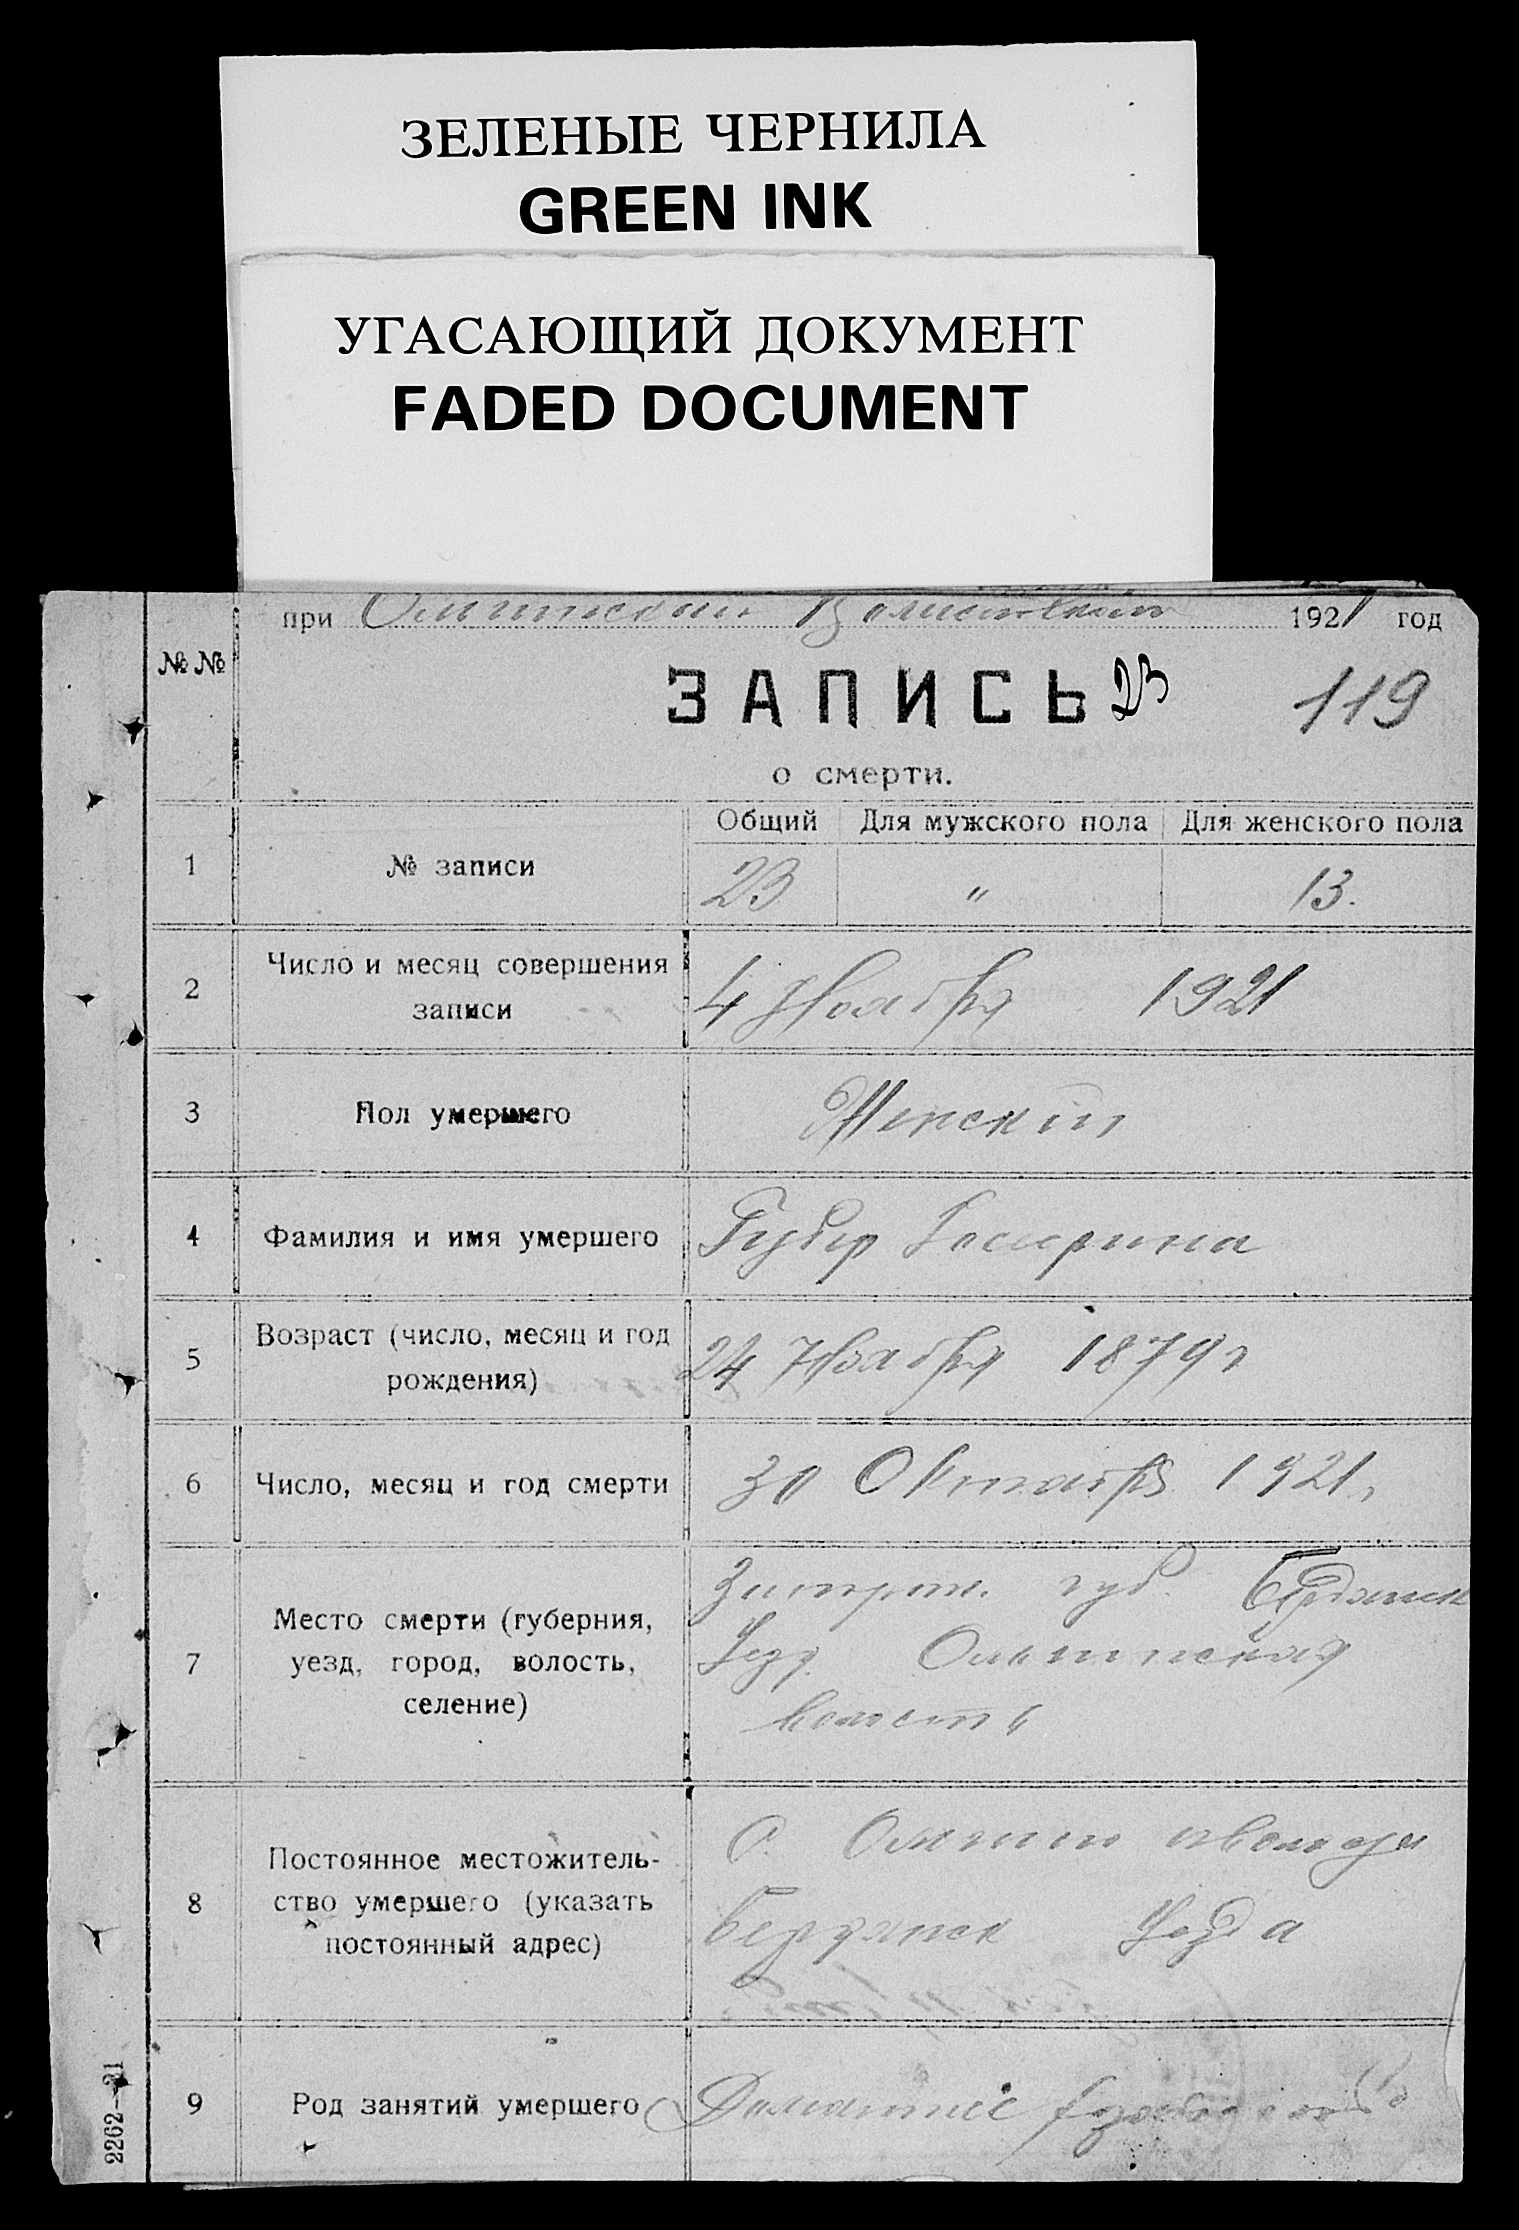 ЗЕЛЕНЫЕ ЧЕРНИЛА
GREEN INK
УГАСАЮЩИЙ ДОКУМЕНТ
FADED DOCUMENT
при 1921 год
№ №
ЗАПИСЬ 23 119
о смерти.
Общий Для мужского пола Для женского пола
1 № записи 23 " 13.
2 Число и месяц совершения
записи
4 Ноября 1921
3 Пол умершего Женский
4 Фамилия и имя умершего Губер
5 Возраст (число, месяц и год
рождения)
24 Ноября 1879 г
6 Число, месяц и год смерти 30 Октября 1921,
7 Место смерти (губерния,
уезд, город, волость,
селение)
губ. Бердянск
Уезд
волость
8 Постоянное местожитель-
ство умершего (указать
постоянный адрес)
С.
Бердянск Уезда
9 Род занятий умершего Домашнее
2262—21